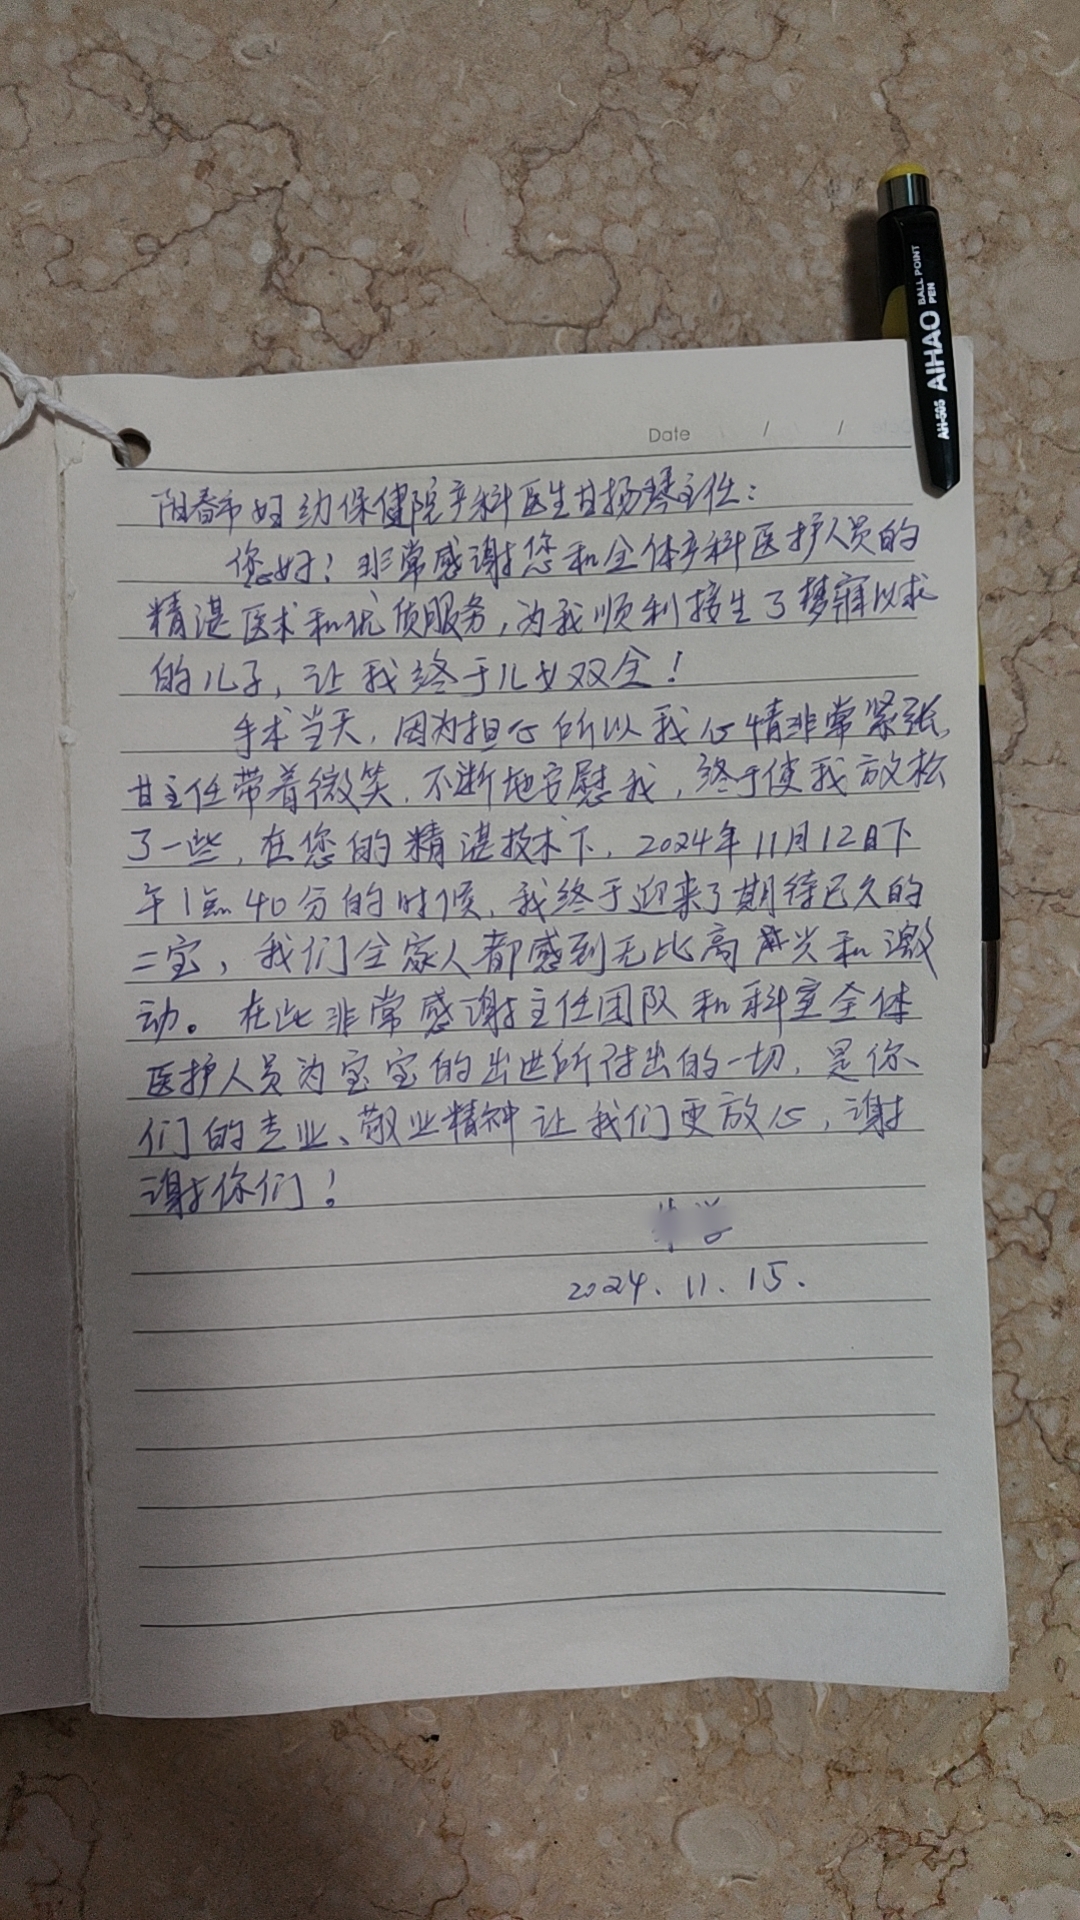 Date / /
阳春市妇幼保健院产科医生甘扬琴主任：
您好！非常感谢您和全体产科医护人员的
精湛医术和优质服务，为我顺利接生了梦寐以求
的儿子，让我终于儿女双全！
手术当天，因为担心所以我心情非常紧张，
甘主任带着微笑，不断地安慰我，终于使我放松
了一些，在您的精湛技术下，2024年11月12日下
午1点40分的时候，我终于迎来了期待已久的
二宝，我们全家人都感到无比高兴和激
动。在此非常感谢主任团队和科室全体
医护人员为宝宝的出世所付出的一切，是你
们的专业、敬业精神让我们更放心，谢
谢你们！
2024.11.15.
AIHAO BALL POINT PEN
AH-505